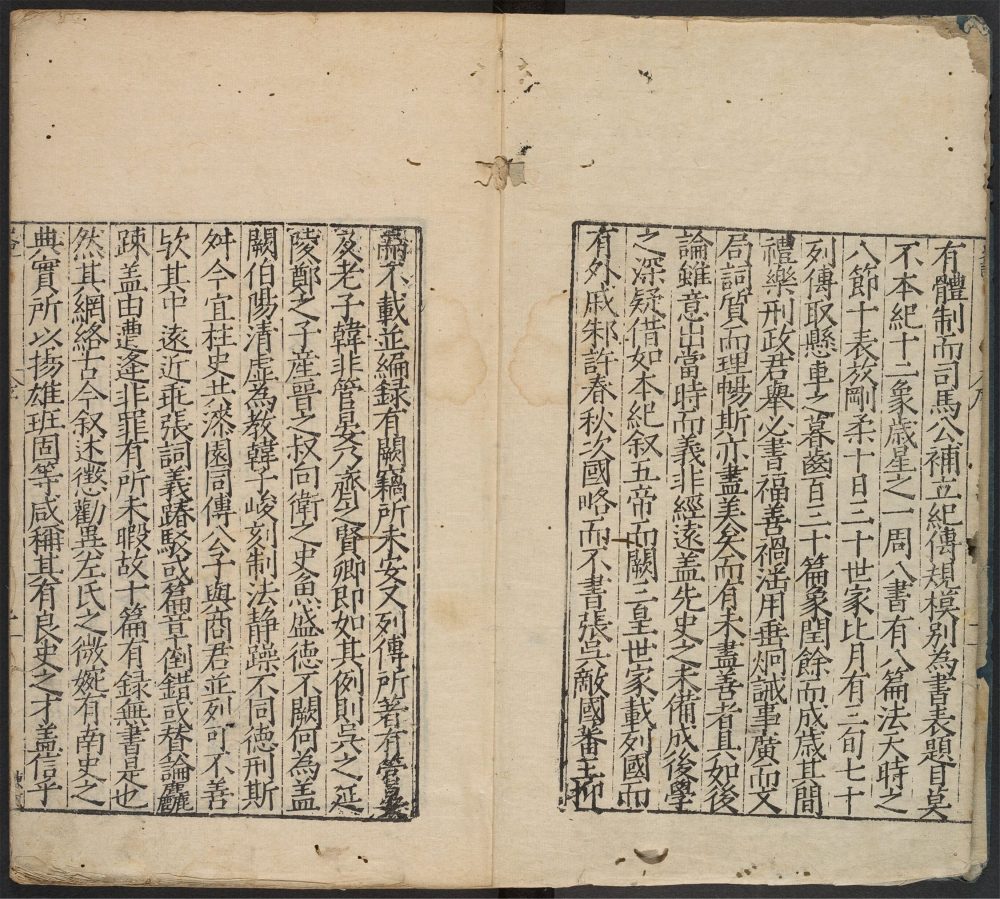 有體制而司馬公補立紀傳規模别為書表題目莫
不本紀十二象歳星之一周八書有八篇法天時之
八節十表放剛柔十日三十世家比月有三旬七十
列傳取懸車之暮齒百三十篇象閏餘而成歳其間
禮樂刑政君舉必書福善禍滛用垂烱誡事廣而文
局詞質而理暢斯亦盡美矣而有未盡善者具如後
論雖意出當時而義非經遠盖先史之未備成後學
之深疑借如本紀叙五帝而闕三皇世家載列國而
有外戚邾許春秋次國略而不書張吳敵國蕃王抑
而不載並編録有闕竊所未安又列傳所著有管晏
及老子韓非管晏乃齊之賢卿即如其例則吳之延
陵鄭之子産晉之叔向衛之史魚盛徳不闕何為盖
闕伯陽清虛為教韓子峻刻制法静躁不同徳刑斯
舛今宜柱史共漆園同傳公子與商君並列可不善
欤其中逺近乖張詞義踳駁或篇章倒錯或賛論麤
踈盖由遭逢非罪有所未暇故十篇有録無書是也
然其網絡古今叙述懲勸異左氏之微婉有南史之
典實所以揚雄班固等咸稱其有良史之才盖信乎